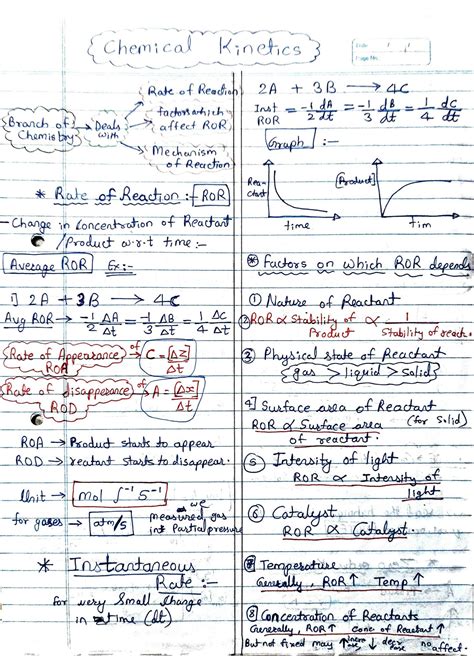 Chemical Kinetics
Date / /
Page No.
Branch of Chemistry → Deals with
Rate of Reaction
factors which affect ROR
Mechanism of Reaction
* Rate of Reaction :- ROR
- Change in Concentration of Reactant
/Product w.r.t time :-
Average ROR Ex:-
1] 2A + 3B → 4C
Avg ROR → -1/2 ΔA/Δt = -1/3 ΔB/Δt = 1/4 ΔC/Δt
Rate of Appearance of → C = [Δz]/Δt
ROA
Rate of disapperance of → A = [Δx]/Δt
ROD
ROA → Product starts to appear
ROD → reatant starts to disappear.
Unit → mol ʃ⁻¹ S⁻¹
for gases → atm/s we measured gas
int Partial pressure
* Instantaneous
Rate :-
For very Small Change
in time (dt)
2A + 3B → 4C
Inst ROR = -1/2 dA/dt = -1/3 dB/dt = 1/4 dC/dt
Graph :-
Reactant
time
[Product]
tim
* Factors on which ROR depends
① Nature of Reactant
② ROR ∝ Stability of Product ∝ 1/Stability of reach.
③ Physical state of Reactant
gas > liquid > solid
4] Surface area of Reactant
ROR ∝ Surface area (for Solid)
of reactant.
⑤ Intensity of light
ROR ∝ Intensity of
light
⑥ Catalyst
ROR ∝ Catalyst.
⑦ Temperature
Generally, ROR↑ Temp↑
⑧ Concentration of Reactants
Generally, ROR↑ Conc of Reactant↑
But not fixed may ↑ increase ↓ decrease no affect